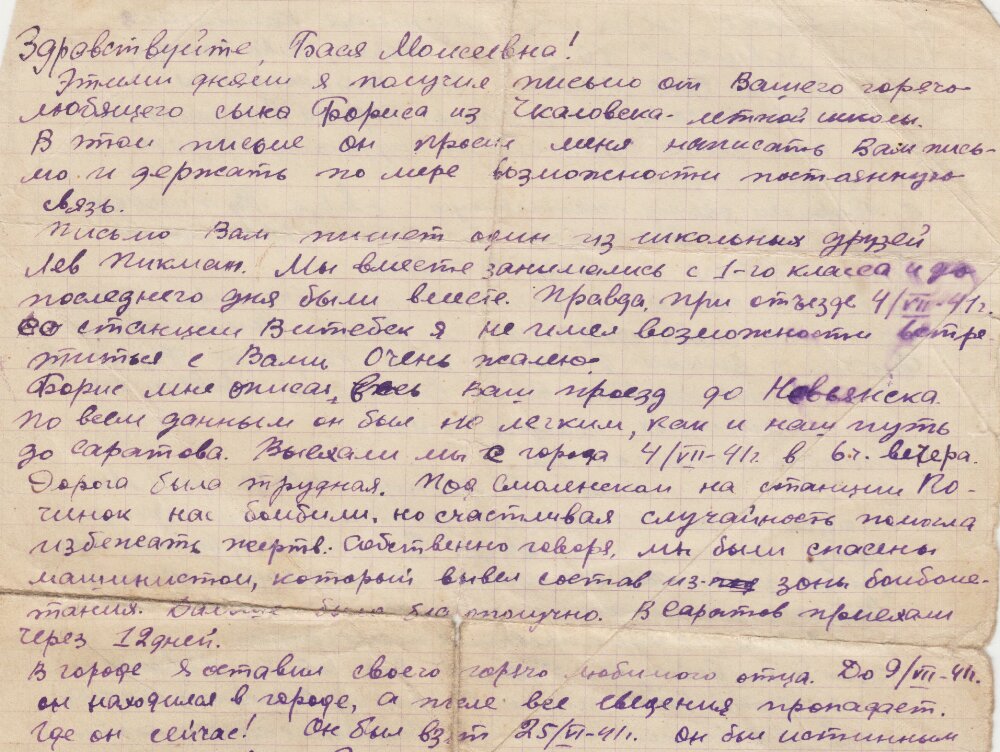 Здравствуйте, Бася Моисеевна!
Этими днями я получил письмо от Вашего горячо
любящего сына Бориса из Чкаловска - летной школы.
В этом письме он просил меня написать Вам пись-
мо и держать по мере возможности постоянную
связь.
Письмо Вам пишет один из школьных друзей
Лев Пикман. Мы вместе занимались с 1-го класса и до
последнего дня были вместе. Правда, при отъезде 4/VII-41г.
со станции Витебск я не имел возможности встре-
титься с Вами. Очень жалею.
Борис мне описал весь Ваш проезд до Невьянска.
По всем данным он был не легким, как и наш путь
до Саратова. Выехали мы с города 4/VII-41г. в 6 ч. вечера.
Дорога была трудная. Под Смоленском на станции По-
чинок нас бомбили, но счастливая случайность помогла
избежать жертв. Собственно говоря, мы были спасены
машинистом, который вывел состав из зоны бомбоме-
тания. Дальше было благополучно. В Саратов приехали
через 12 дней.
В городе я оставил своего горячо любимого отца. До 9/VII-41г.
он находился в городе, а после все сведения пропадают.
Где он сейчас! Он был взят 25/VI-41г. Он был истинным